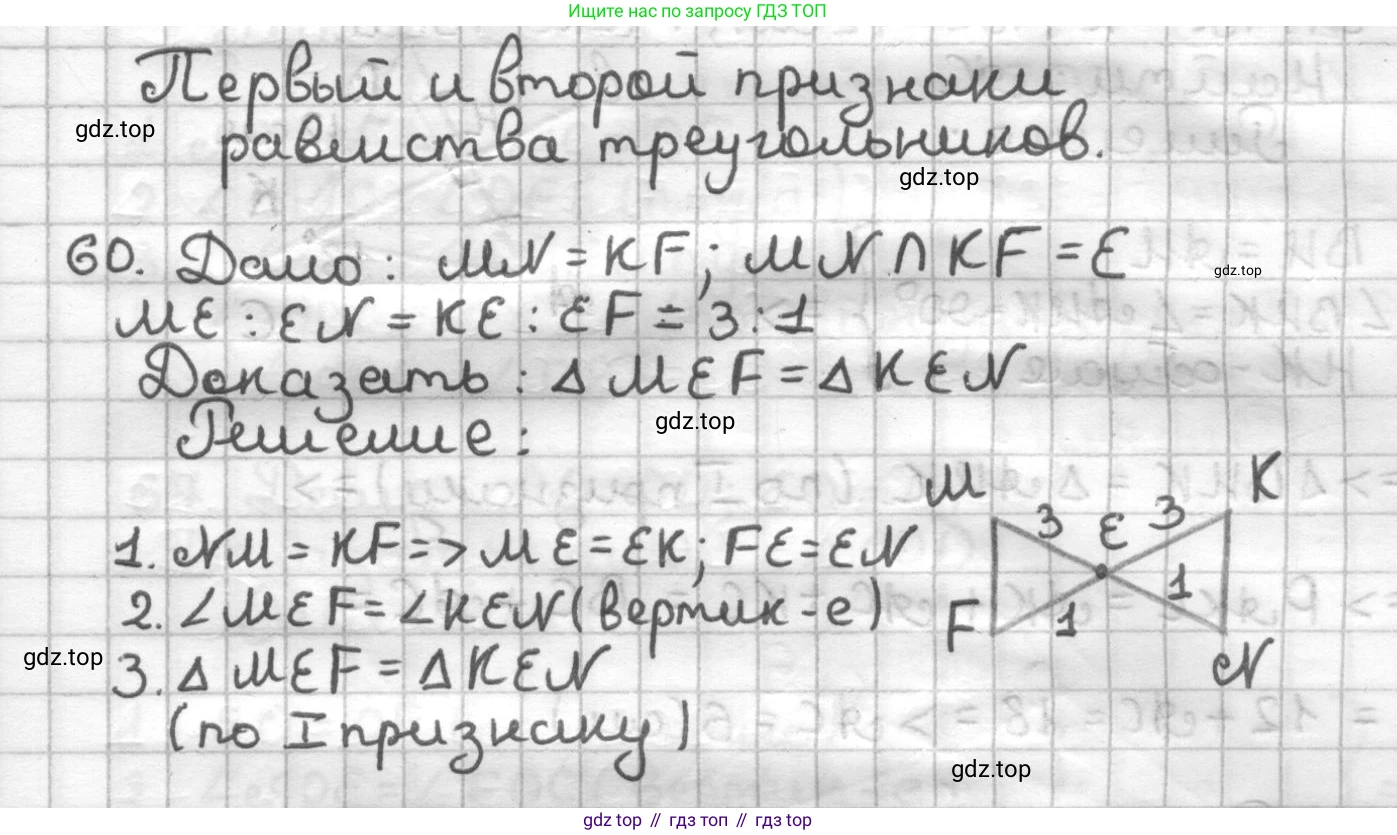 Ищите нас по запросу ГДЗ ТОП
Первый и второй признаки
gdz.top
равенства треугольников.
gdz.top
60. Дано: MN = KF; MN ∩ KF = E
gdz.top
ME : EN = KE : EF = 3:1
Доказать: Δ MEF = Δ KEN
gdz.top
Решение:
M K
3 E 3
1. NM = KF => ME = EK; FE = EN
1
2. ∠MEF = ∠KEN (вертик-е)
F 1
gdz.top
N
3. Δ MEF = Δ KEN
(по I признаку)
gdz.top
gdz top // гдз топ // gdz top